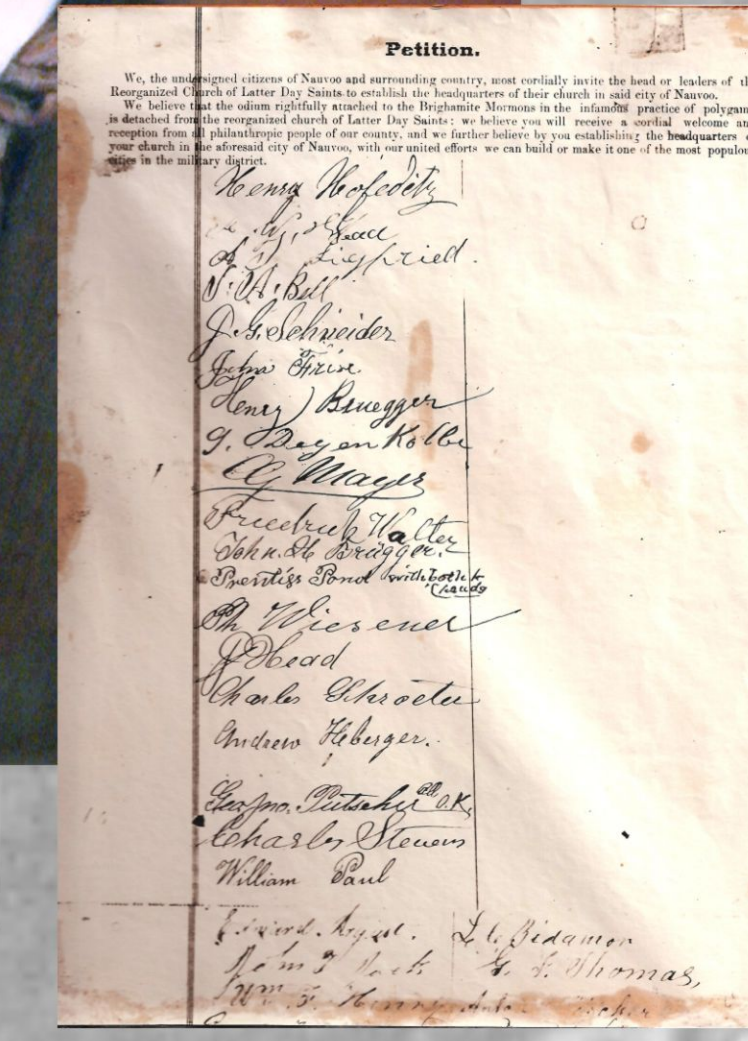 Petition.
We, the undersigned citizens of Nauvoo and surrounding country, most cordially invite the head or leaders of
Reorganized Church of Latter Day Saints to establish the headquarters of their church in said city of Nauvoo.
We believe that the odium rightfully attached to the Brighamite Mormons in the infamous practice of polygam
is detached from the reorganized church of Latter Day Saints; we believe you will receive a cordial welcome an
reception from all philanthropic people of our county, and we further believe by you establishing the headquarters
your church in the aforesaid city of Nauvoo, with our united efforts we can build or make it one of the most populou
cities in the military district.
Henry Hofeditz
Head
Siegfried.
S. A. Bell
J. G. Schneider
John
Henry Bruegger
Mayer
Friedrich Walter
John. H Brügger.
Prentiss Pond with both
hands
Ph Wiesener
J Head
Charles Schroeter
Andrew Heberger.
Geo Jno. O.K.
Charles Stevens
William Paul
Bidamon
John G. F. Thomas,
Wm F. Henry Anton